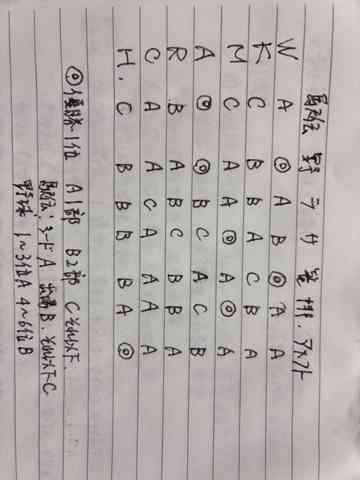 駅伝 野 ラ サ 篭 排. アメフト
W A ◎ A B ◎ A A
K C B B A C B A
M C A A ◎ A ◎ A
A ◎ ◎ B C A C B
R B A B C B B A
C A A C A A A A
H. C B B B B A ◎
◎優勝・1位 A1部 B2部 Cそれ以下.
駅伝;シードA 出場B. それ以下C
野球 1〜3位A 4〜6位B